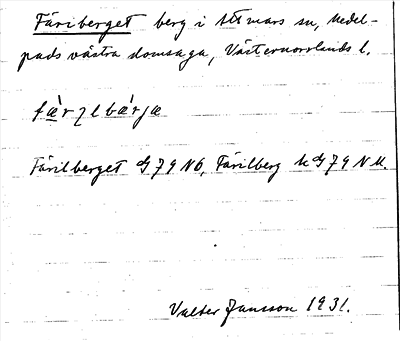 Färiberget berg i Attmars sn, Medel-
pads västra domsaga, Västernorrlands l.
Färilberget G 79 NÖ, Färilberg k G 79 NV.
Valter Jansson 1931.